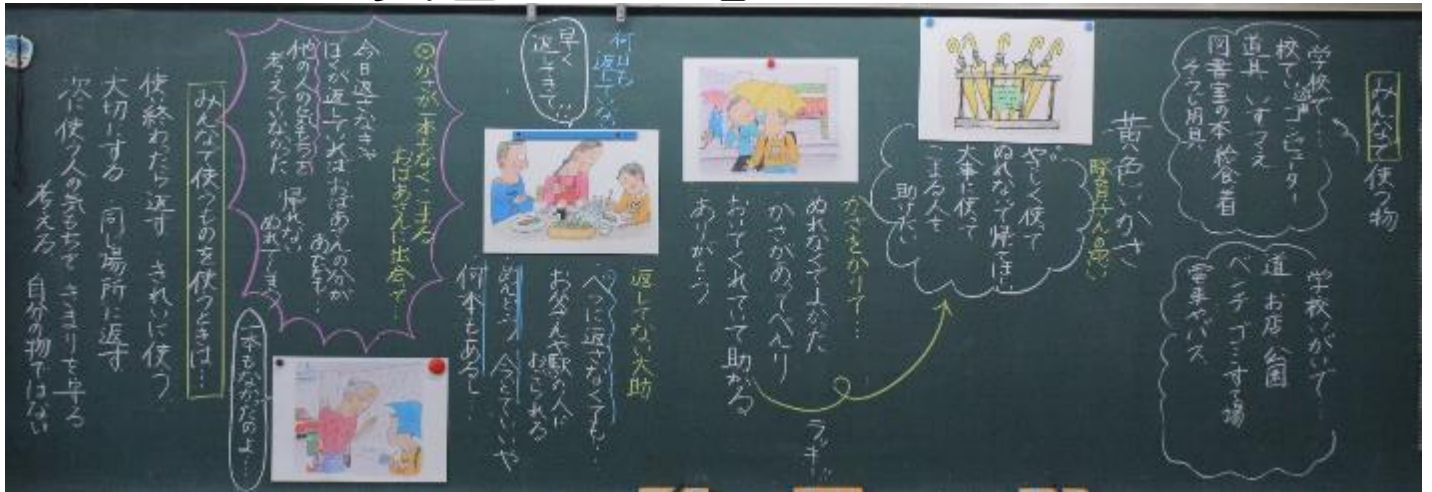 みんなで使う物
学校で…
校てい 遊具 コンピューター
道具 いす つくえ
図書室の本 給食着
そうじ用具
学校いがいで…
道 お店 公園
ベンチ ゴミすて場
電車やバス
黄色いかさ
駅員さんの思い
やさしく使って
ぬれないで帰ってほしい
大事に使って
こまる人を
助けたい
かさをかりて…
ぬれなくてよかった
かさがあってべんり
おいてくれていて助かる
ありがとう
ラッキー
何日も
返していない
早く
返してきて…
返してない大助
べつに返さなくても…
お父さんや駅の人に
おこられる
めんどう 今どっていいや
何本もあるし…
◎かさが一本もなくこまる
おばあさんに出会って…
今日返さなきゃ
ぼくが返していればおばあさんの分が
あったのに…
他の人の気もちを
考えていなかった
帰れない
ぬれてしまう
一本もなかったのよ…
みんなで使うものを使うときは…
使い終わったら返す きれいに使う
大切にする 同じ場所に返す
次に使う人の気もちを きまりを守る
考える 自分の物ではない